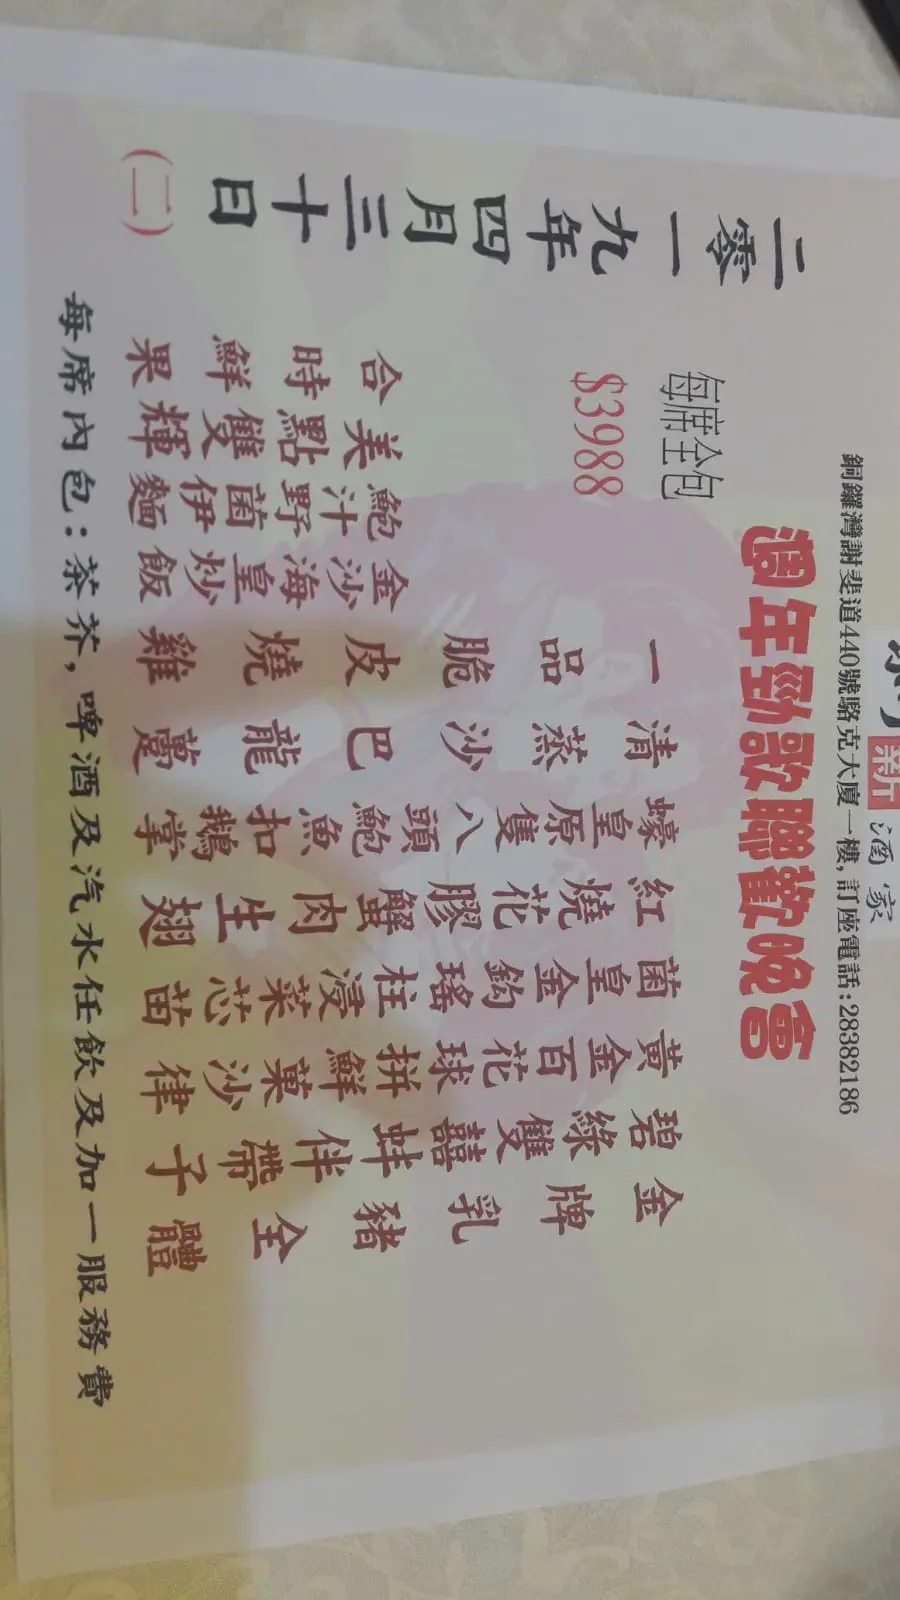 新酒家
銅鑼灣謝斐道440號駱克大廈一樓,訂座電話:28382186
週年勁歌聯歡晚會
每席全包
$3988
金牌乳豬全體
碧綠雙囍蚌伴帶子
黃金百花球拼鮮菓沙律
菌皇金鈎瑤柱浸菜芯苗
紅燒花膠蟹肉生翅
蠔皇原隻八頭鮑魚扣鵝掌
清蒸沙巴龍躉
一品脆皮燒雞
金沙海皇炒飯
鮑汁野菌伊麵
美點雙輝
合時鮮果
二零一九年四月三十日(二)
每席內包:茶芥,啤酒及汽水任飲及加一服務費